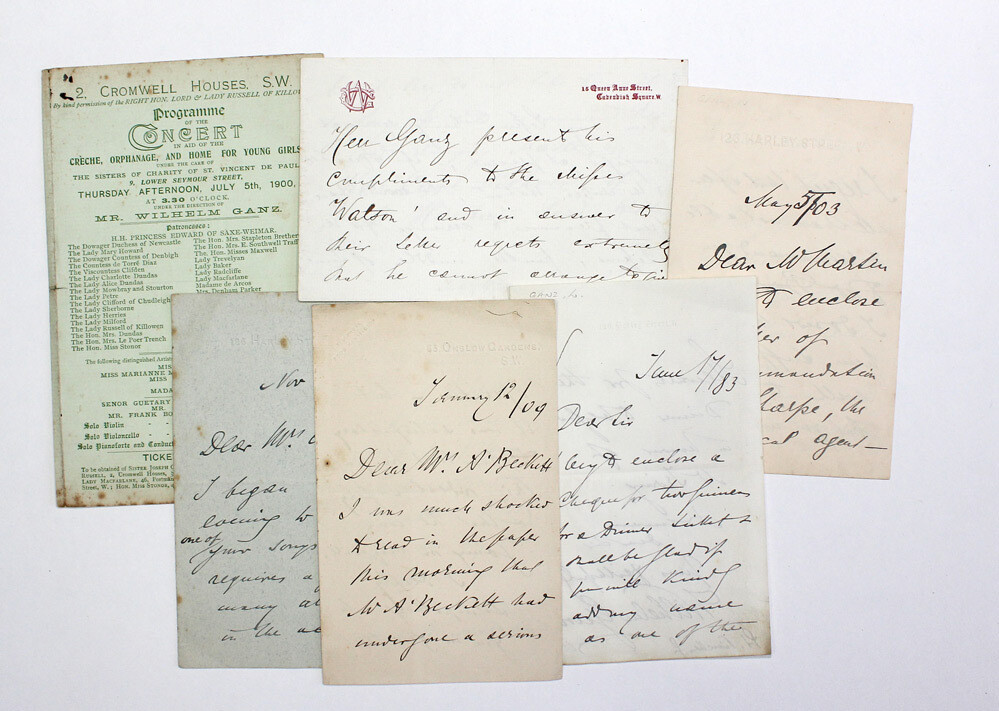 2, CROMWELL HOUSES, S.W.
(By kind permission of the RIGHT HON. LORD & LADY RUSSELL OF KILLOW
Programme
OF THE
CONCERT
IN AID OF THE
CRECHE, ORPHANAGE, AND HOME FOR YOUNG GIRLS
UNDER THE CARE OF
THE SISTERS OF CHARITY OF ST. VINCENT DE PAUL
9, LOWER SEYMOUR STREET,
THURSDAY AFTERNOON, JULY 5th, 1900,
AT 3.30 O'CLOCK,
UNDER THE DIRECTION OF
MR. WILHELM GANZ.
Patronesses:
H.H. PRINCESS EDWARD OF SAXE-WEIMAR.
The Dowager Duchess of Newcastle
The Lady Mary Howard
The Dowager Countess of Denbigh
The Countess de Torre Diaz
The Viscountess Clifden
The Lady Charlotte Dundas
The Lady Alice Dundas
The Lady Mowbray and Stourton
The Lady Petre
The Lady Clifford of Chudleigh
The Lady Sherborne
The Lady Herries
The Lady Milford
The Lady Russell of Killowen
The Hon. Mrs. Dundas
The Hon. Mrs. Le Poer Trench
The Hon. Miss Stonor
The Hon. Mrs. Stapleton Brether
The Hon. Mrs. E. Southwell Traff
The Hon. Misses Maxwell
Lady Trevelyan
Lady Baker
Lady Radcliffe
Lady Macfarlane
Madame de Arcos
Mrs. Denham Parker
The following distinguished Artis
MISS
MISS MARIANNE
MISS
MADA
SENOR GUETARY
MR.
MR. FRANK BO
Solo Violin
Solo Violoncello
Solo Pianoforte and Conduct
TICKE
To be obtained of SISTER JOSEPH
RUSSELL, 2, Cromwell Houses,
LADY MACFARLANE, 46, Portman
Street, W.; HON. MISS STONOR,
16 Queen Anne Street,
Cavendish Square. W.
Herr Ganz present his
compliments to the Misses
Watson' and in answer to
their letter regrets extremely
that he cannot arrange to
126 HARLEY ST
May 5/03
Dear Mr Marten
to enclose
of
mmendation
Sharpe, the
cal agent—
Nov
Dear Mrs
I began
evening to
one of your songs
requires a
many
in the ac
23, ONSLOW GARDENS,
S.W.
January 12/09
Dear Mrs A'Beckett
I was much shocked
to read in the paper
this morning that
Mr A'Beckett had
undergone a serious
June 17/83
Dear Sir
I beg to enclose a
cheque for two guineas
for a Dinner ticket &
shall be glad if
you will kindly
add my name
as one of the